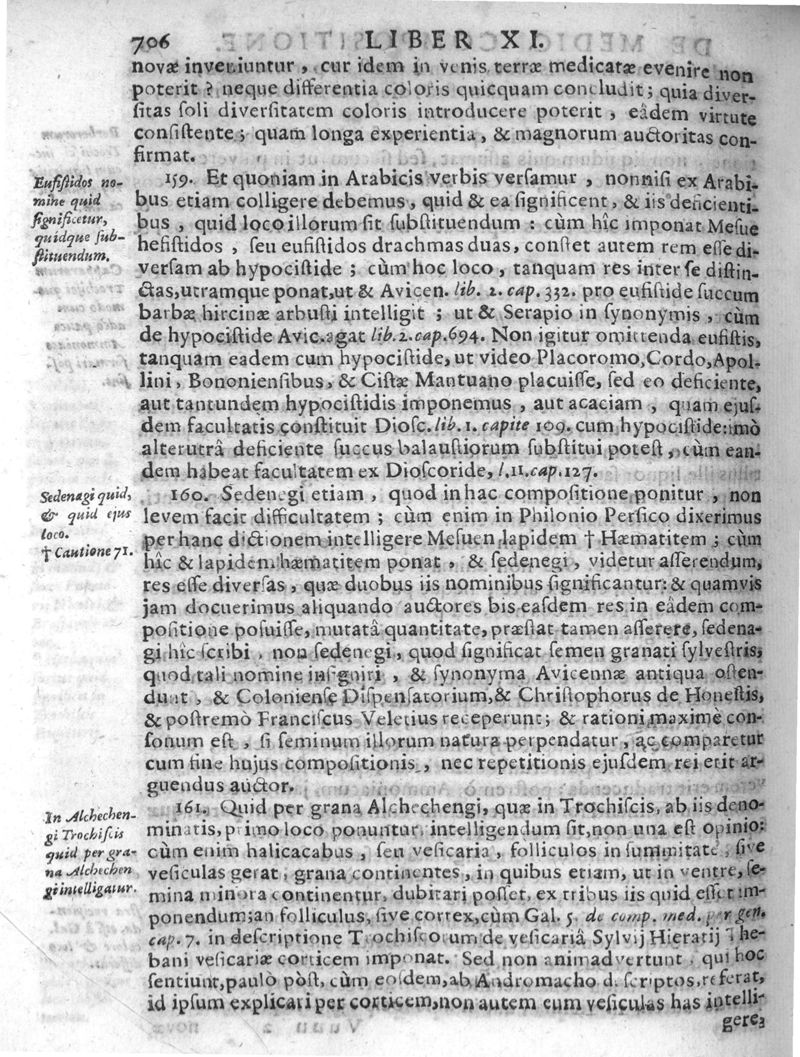 706 LIBER XI.
novæ inveniuntur, cur idem in venis terræ medicatæ evenire non
poterit? neque differentia coloris quicquam concludit; quia diver-
ſitas ſoli diverſitatem coloris introducere poterit, eâdem virtute
conſiſtente; quam longa experientia, & magnorum auctoritas con-
firmat.
Eufiſtidos no-
mine quid
ſignificetur,
quidque ſub-
ſtituendum.
159. Et quoniam in Arabicis verbis verſamur, nonniſi ex Arabi-
bus etiam colligere debemus, quid & ea ſignificent, & iis deficienti-
bus, quid loco illorum ſit ſubſtituendum: cùm hîc imponat Meſue
hefiſtidos, ſeu eufiſtidos drachmas duas, conſtet autem rem eſſe di-
verſam ab hypociſtide; cùm hoc loco, tanquam res inter ſe diſtin-
ctas, utramque ponat, ut & Avicen. lib. 2. cap. 332. pro eufiſtide ſuccum
barbæ hircinæ arbuſti intelligit; ut & Serapio in ſynonymis, cùm
de hypociſtide Avic. agat lib. 2. cap. 694. Non igitur omittenda eufiſtis,
tanquam eadem cum hypociſtide, ut video Placoromo, Cordo, Apol-
lini, Bononienſibus, & Ciſtæ Mantuano placuiſſe, ſed eo deficiente,
aut tantundem hypociſtidis imponemus, aut acaciam, quam ejuſ-
dem facultatis conſtituit Dioſc. lib. 1. capite 109. cum hypociſtide: imò
alterutrâ deficiente ſuccus balauſtiorum ſubſtitui poteſt, cùm ean-
dem habeat facultatem ex Dioſcoride, l. 11. cap. 127.
Sedenagi quid,
& quid ejus
loco.
† Cautione 71.
160. Sedenegi etiam, quod in hac compoſitione ponitur, non
levem facit difficultatem; cùm enim in Philonio Perſico dixerimus
per hanc dictionem intelligere Meſuen lapidem † Hæmatitem; cùm
hîc & lapidem hæmatitem ponat, & ſedenegi, videtur aſſerendum,
res eſſe diverſas, quæ duobus iis nominibus ſignificantur: & quamvis
jam docuerimus aliquando auctores bis eaſdem res in eâdem com-
poſitione poſuiſſe, mutatâ quantitate, præſtat tamen aſſerere, ſedena-
gi hîc ſcribi, non ſedenegi, quod ſignificat ſemen granati ſylveſtris,
quod tali nomine inſigniri, & ſynonyma Avicennæ antiqua oſten-
dunt, & Colonienſe Diſpenſatorium, & Chriſtophorus de Honeſtis,
& poſtremò Franciſcus Veletius receperunt; & rationi maximè con-
ſonum eſt, ſi ſeminum illorum natura perpendatur, ac comparetur
cum fine hujus compoſitionis, nec repetitionis ejuſdem rei erit ar-
guendus auctor.
In Alchechen-
gi Trochiſcis
quid per gra-
na Alchechen
gi intelligatur.
161. Quid per grana Alchechengi, quæ in Trochiſcis, ab iis deno-
minatis, primo loco ponuntur, intelligendum ſit, non una eſt opinio:
cùm enim halicacabus, ſeu veſicaria, folliculos in ſummitate, ſive
veſiculas gerat, grana continentes, in quibus etiam, ut in ventre, ſe-
mina minora continentur, dubitari poſſet, ex tribus iis quid eſſet im-
ponendum; an folliculus, ſive cortex, cùm Gal. 5. de comp. med. per gen.
cap. 7. in deſcriptione Trochiſcorum de veſicariâ Sylvij Hieratij The-
bani veſicariæ corticem imponat. Sed non animadvertunt, qui hoc
ſentiunt, paulò pòſt, cùm eoſdem, ab Andromacho d. ſcriptos, referat,
id ipſum explicari per corticem, non autem eum veſiculas has intelli-
gere;